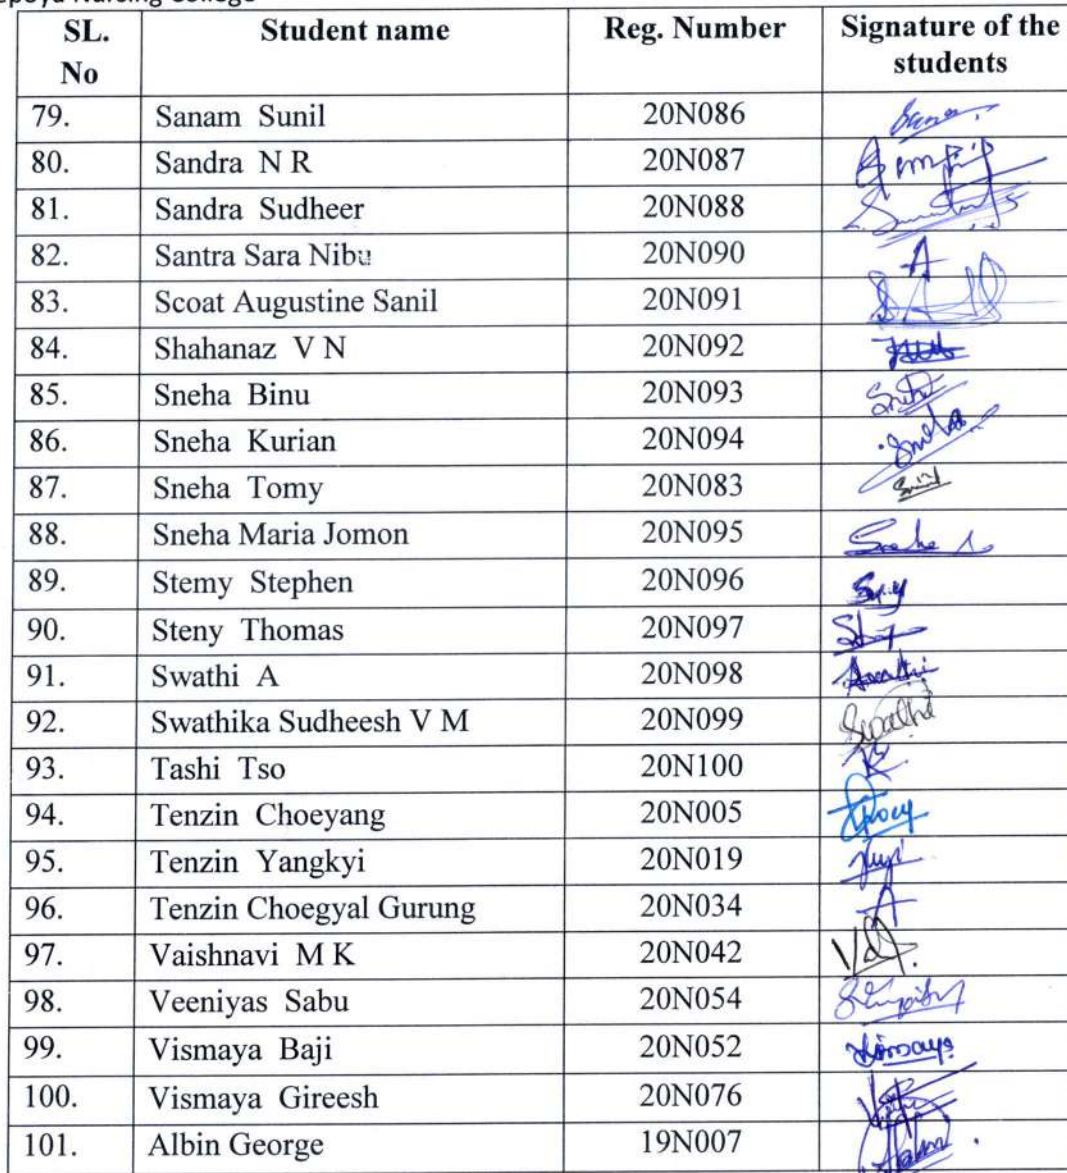 Nursing College
SL. No Student name Reg. Number Signature of the students
79. Sanam Sunil 20N086
80. Sandra N R 20N087
81. Sandra Sudheer 20N088
82. Santra Sara Nibu 20N090
83. Scoat Augustine Sanil 20N091
84. Shahanaz V N 20N092
85. Sneha Binu 20N093
86. Sneha Kurian 20N094
87. Sneha Tomy 20N083
88. Sneha Maria Jomon 20N095
89. Stemy Stephen 20N096
90. Steny Thomas 20N097
91. Swathi A 20N098
92. Swathika Sudheesh V M 20N099
93. Tashi Tso 20N100
94. Tenzin Choeyang 20N005
95. Tenzin Yangkyi 20N019
96. Tenzin Choegyal Gurung 20N034
97. Vaishnavi M K 20N042
98. Veeniyas Sabu 20N054
99. Vismaya Baji 20N052
100. Vismaya Gireesh 20N076
101. Albin George 19N007